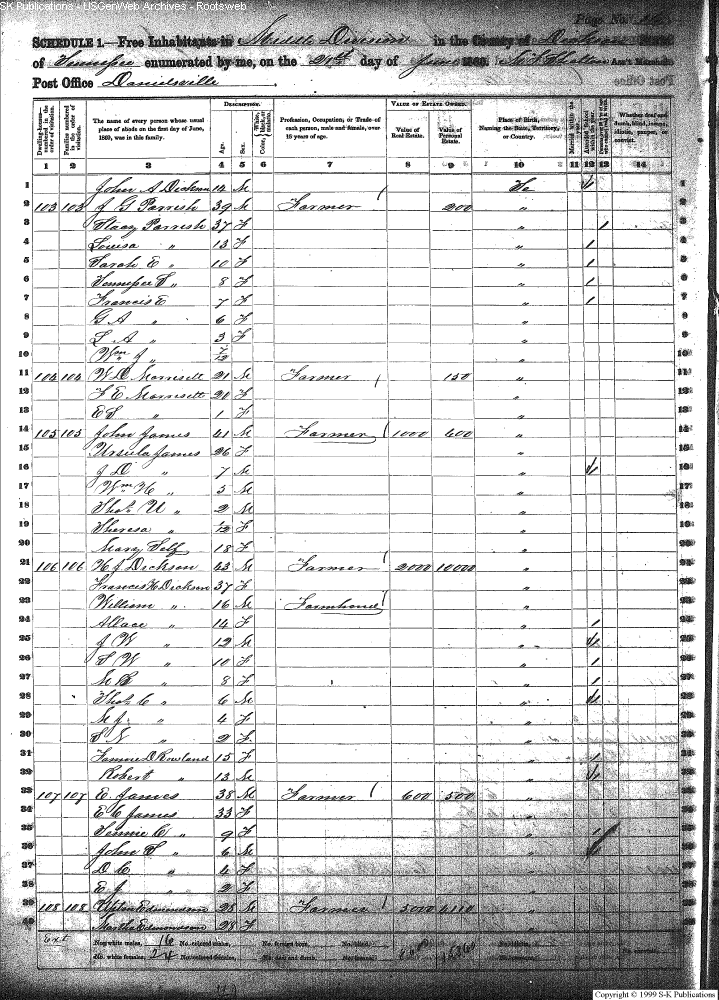 SK Publications - USGenWeb Archives - Rootsweb
Page No.
SCHEDULE 1.—Free Inhabitants in Middle Division in the County of Dickson State
of Tennessee enumerated by me, on the 21st day of June 1860. Ass't Marshal.
Post Office Danielsville
Dwelling-houses—numbered in the order of visitation.
Families numbered in the order of visitation.
The name of every person whose usual place of abode on the first day of June, 1860, was in this family.
DESCRIPTION.
Age.
Sex.
Color, White, black, or mulatto.
Profession, Occupation, or Trade of each person, male and female, over 15 years of age.
VALUE OF ESTATE OWNED.
Value of Real Estate.
Value of Personal Estate.
Place of Birth, Naming the State, Territory, or Country.
Married within the year.
Attended School within the year.
Whether deaf and dumb, blind, insane, idiotic, pauper, or convict.
1 2 3 4 5 6 7 8 9 10 11 12 13 14
1 John A Dickson 12 M Te 1 1
2 103 103 J G Parrish 39 M Farmer 200 " 2
3 Stacy Parrish 37 F " 1 3
4 Louisa " 13 F " 1 4
5 Sarah E " 10 F " 1 5
6 Tennessee S " 8 F " 1 6
7 Francis E 7 F " 1 7
8 G A " 6 F " 8
9 L A " 3 F " 9
10 Wm J " 7/12 " 10
11 104 104 W D Morrisett 21 M Farmer 150 " 11
12 F E Morrisett 20 F " 12
13 E S " 1 F " 13
14 105 105 John James 41 M Farmer 1000 600 " 14
15 Ursula James 26 F " 15
16 J D " 7 M " 1 16
17 Wm H " 5 M " 17
18 Thos U " 2 M " 18
19 Theresa " /12 F " 19
20 Mary Self 18 F " 20
21 106 106 H J Dickson 43 M Farmer 2000 10000 " 21
22 Francis H Dickson 37 F " 22
23 William " 16 M Farmhand " 23
24 Allace " 14 F " 1 24
25 J W " 12 M " 1 25
26 S W " 10 F " 1 26
27 M B " 8 F " 1 27
28 Thos C " 6 M " 1 28
29 M J " 4 F " 29
30 S N " 2 F " 30
31 D Rowland 15 F " 1 31
32 Robert " 13 M " 1 32
33 107 107 E James 38 M Farmer 600 500 " 33
34 E C James 33 F " 34
35 Tennie C " 9 F " 1 35
36 John S " 6 M " 36
37 D C " 4 F " 37
38 E J " 2 F " 38
39 108 108 Upton Edmondson 28 M Farmer 3000 4110 " 39
40 Martha Edmondson 28 F " 40
No. white males, 16 No. colored males, No. foreign born, No. blind,
No. white females, 24 No. colored females, No. deaf and dumb, No. insane,
No. idiotic,
No. paupers,
No. convicts
Copyright © 1999 S-K Publications